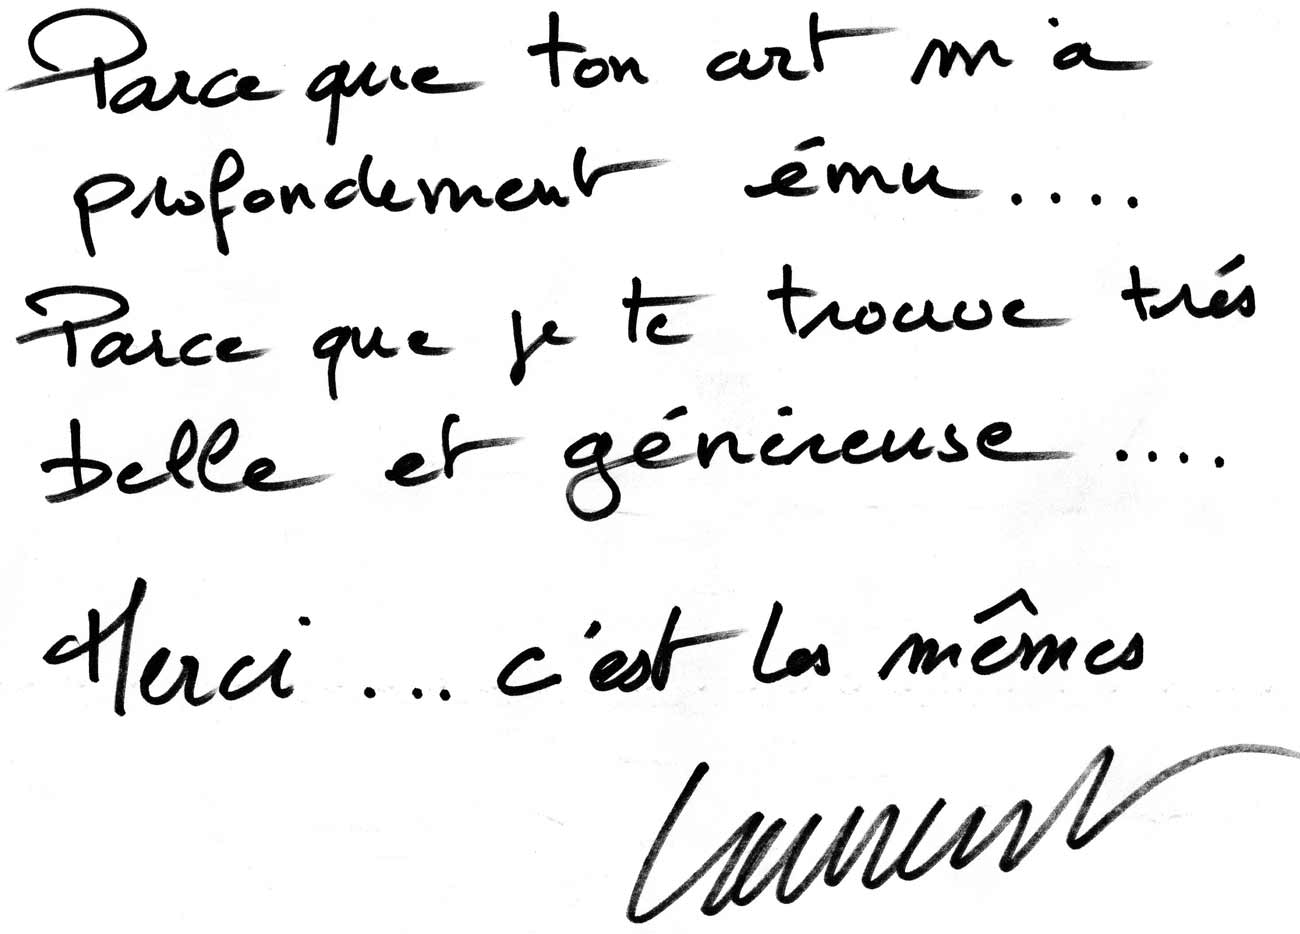 Parce que ton art m'a
profondement ému....
Parce que je te trouve trés
belle et génereuse....
Merci ... c'est les mêmes
Laurent